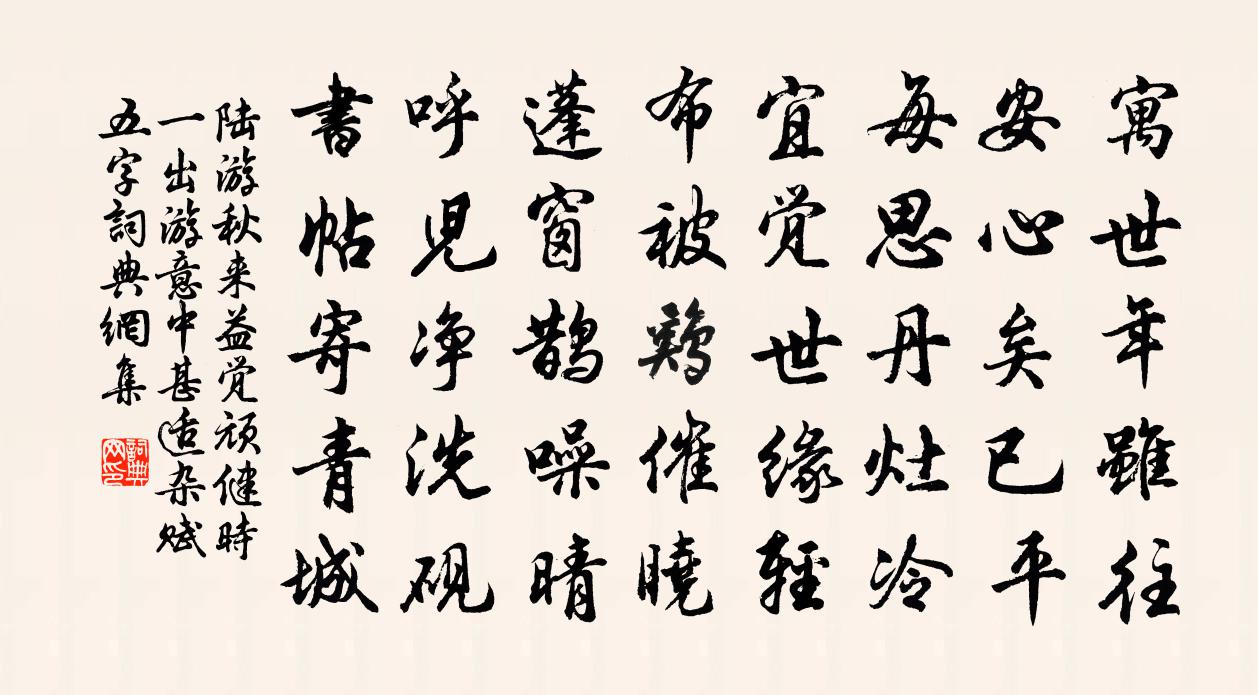 寓世年雖往
安心矣已平
每思丹灶冷
宜觉世缘輕
布被鷄催曉
蓬窗鹊噪晴
呼児净洗砚
書帖寄青城
陆游秋来益觉顽健時
一出游意中甚适杂赋
五字詞典網集
詞典
网印